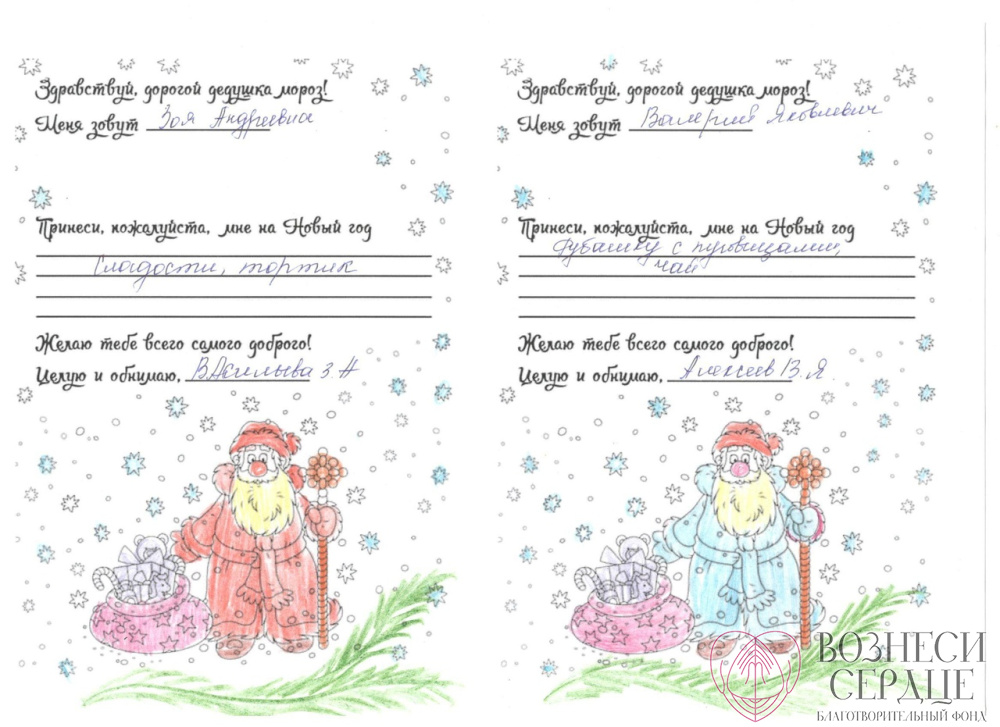 Здравствуй, дорогой дедушка мороз!
Меня зовут Зоя Андреевна
Принеси, пожалуйста, мне на Новый год
Сладости, тортик
Желаю тебе всего самого доброго!
Целую и обнимаю, Васильева З.А
Здравствуй, дорогой дедушка мороз!
Меня зовут Валерий Яковлевич
Принеси, пожалуйста, мне на Новый год
Рубашку с пуговицами,
чай
Желаю тебе всего самого доброго!
Целую и обнимаю, Алексеев В.Я.
ВОЗНЕСИ
СЕРДЦЕ
БЛАГОТВОРИТЕЛЬНЫЙ ФОНД